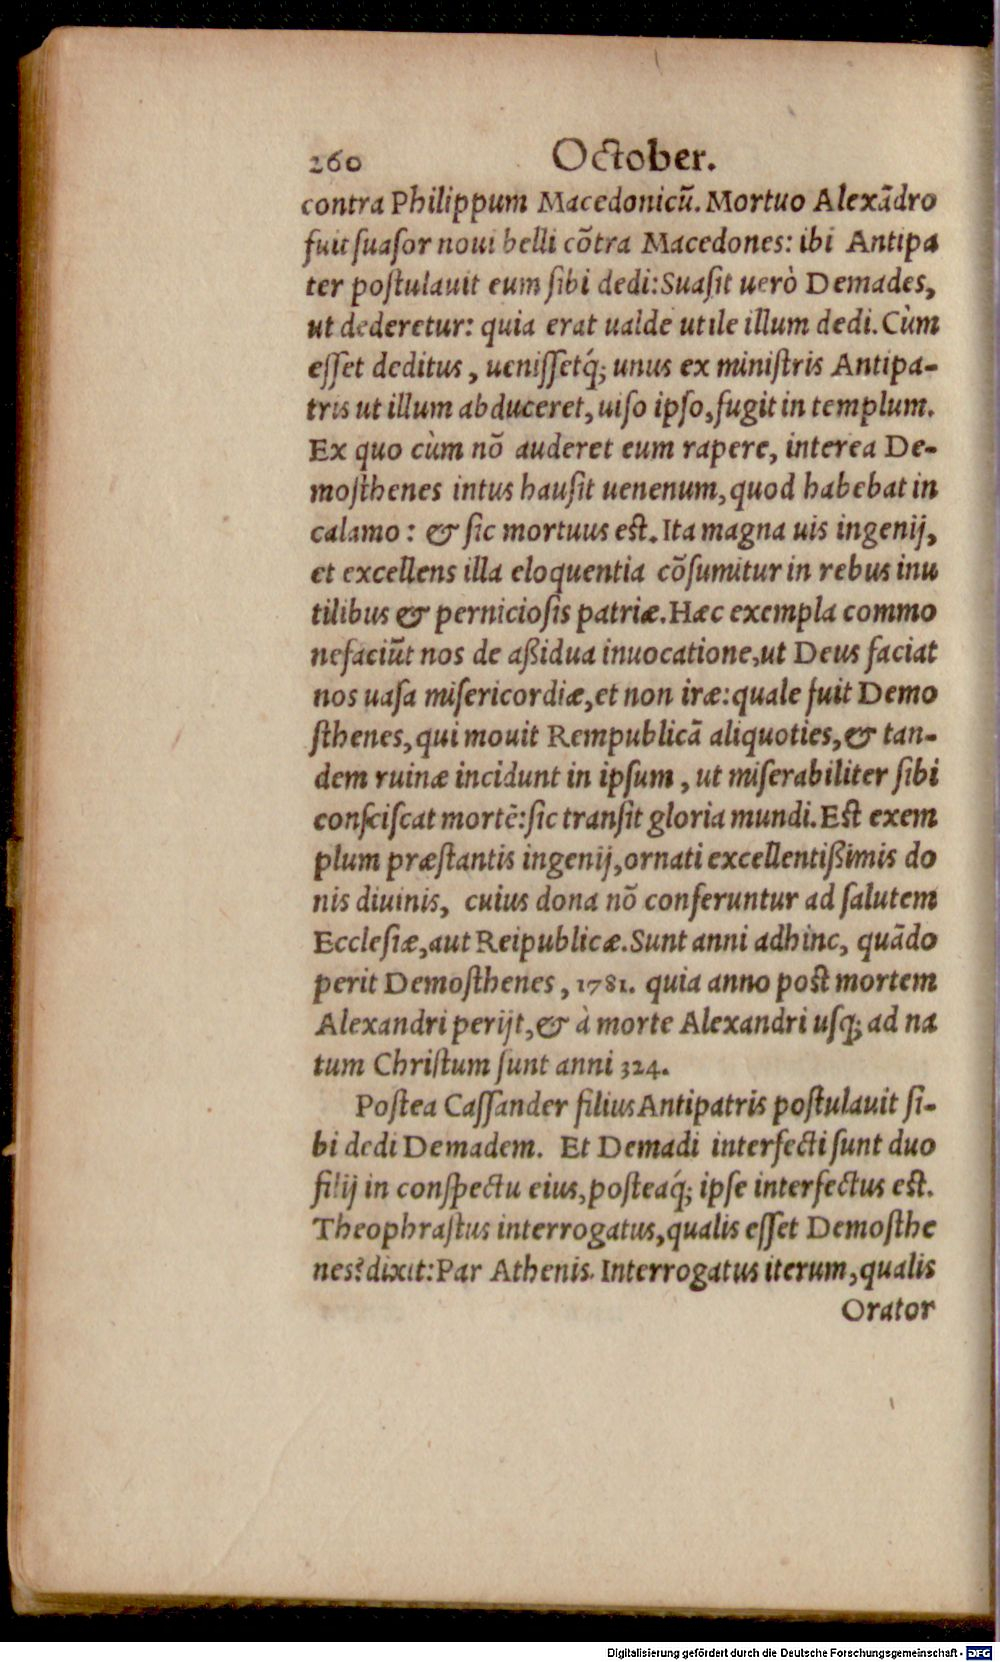 260 October.
contra Philippum Macedonicũ. Mortuo Alexãdro
fuit ſuaſor noui belli cõtra Macedones: ibi Antipa
ter poſtulauit eum ſibi dedi: Suaſit uerò Demades,
ut dederetur: quia erat ualde utile illum dedi. Cùm
eſſet deditus, ueniſſetq́; unus ex miniſtris Antipa-
tris ut illum abduceret, uiſo ipſo, fugit in templum.
Ex quo cùm nõ auderet eum rapere, interea De-
moſthenes intus hauſit uenenum, quod habebat in
calamo: & ſic mortuus eſt. Ita magna uis ingenij,
et excellens illa eloquentia cõſumitur in rebus inu
tilibus & pernicioſis patriæ. Hæc exempla commo
nefaciũt nos de aßidua inuocatione, ut Deus faciat
nos uaſa miſericordiæ, et non iræ: quale fuit Demo
ſthenes, qui mouit Rempublicã aliquoties, & tan-
dem ruinæ incidunt in ipſum, ut miſerabiliter ſibi
conſciſcat mortẽ: ſic tranſit gloria mundi. Eſt exem
plum præſtantis ingenij, ornati excellentißimis do
nis diuinis, cuius dona nõ conferuntur ad ſalutem
Eccleſiæ, aut Reipublicæ. Sunt anni adhinc, quãdo
perit Demoſthenes, 1781. quia anno poſt mortem
Alexandri perijt, & à morte Alexandri uſq; ad na
tum Chriſtum ſunt anni 324.
Poſtea Caſſander filius Antipatris poſtulauit ſi-
bi dedi Demadem. Et Demadi interfecti ſunt duo
filij in conſpectu eius, poſteaq́; ipſe interfectus eſt.
Theophraſtus interrogatus, qualis eſſet Demoſthe
nes? dixit: Par Athenis. Interrogatus iterum, qualis
Orator
Digitalisierung gefördert durch die Deutsche Forschungsgemeinschaft - DFG